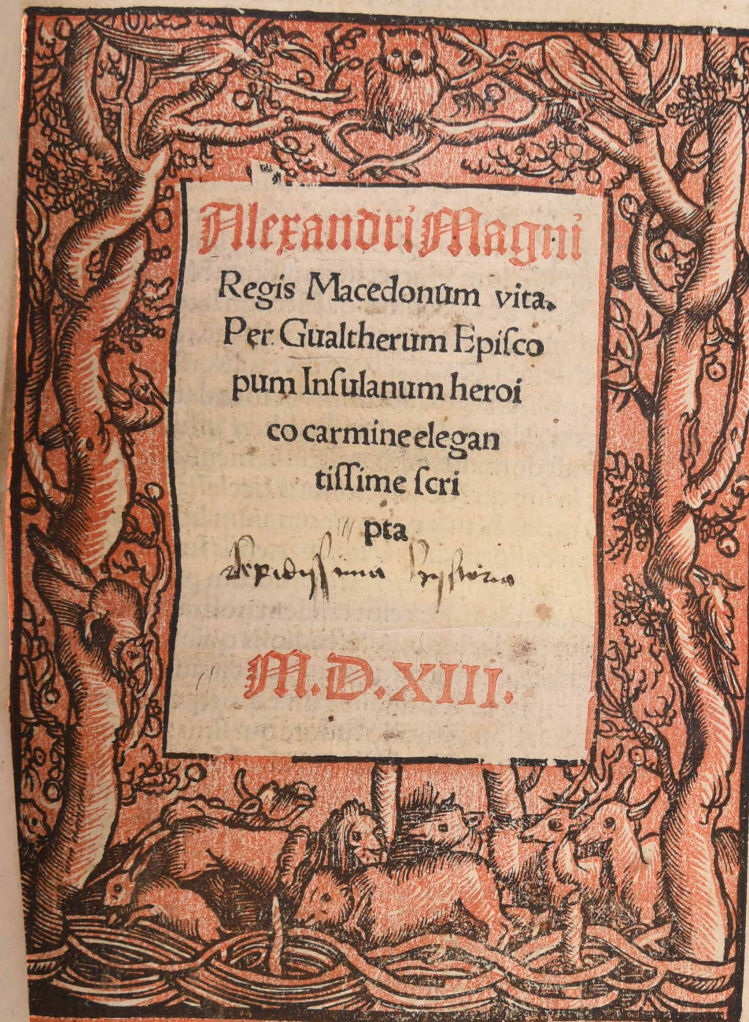 Alexandri Magni
Regis Macedonum vita.
Per Gualtherum Epiſco
pum Inſulanum heroi
co carmine elegan
tiſſime ſcri
pta
lepidiſſima hyſtoria
M.D.XIII.